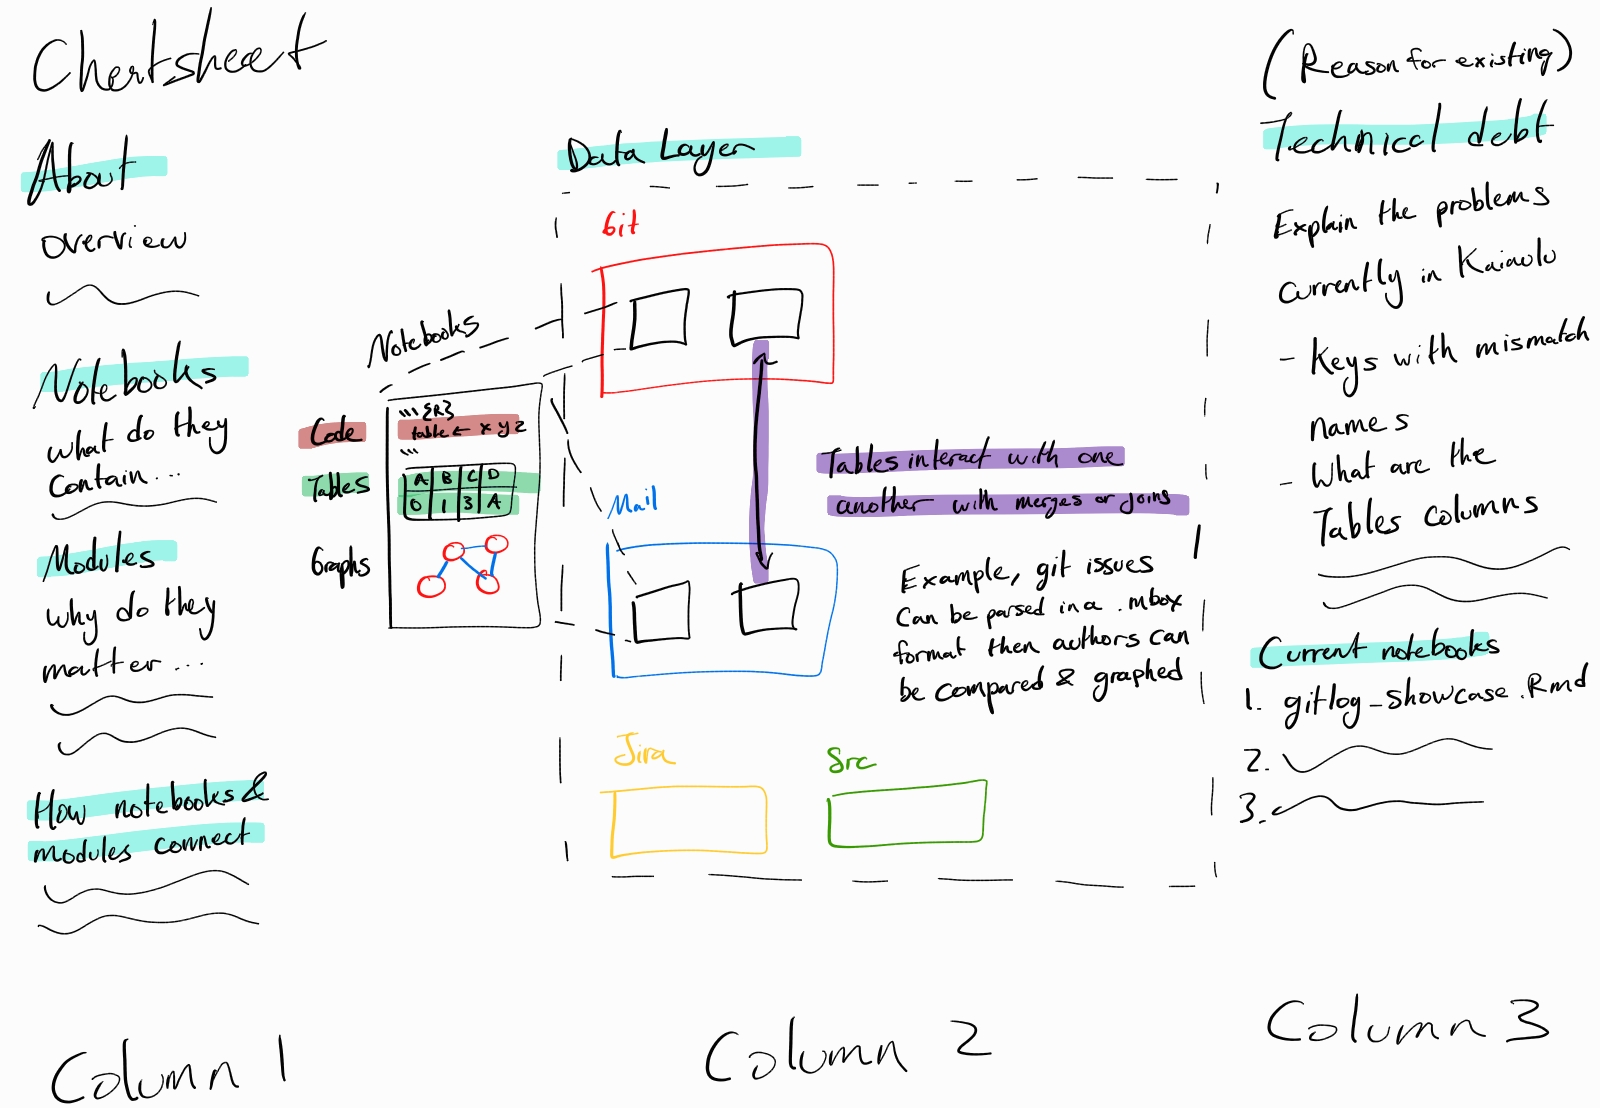 Cheatsheet
About
overview
Notebooks
what do they
Contain...
Modules
why do they
matter...
How notebooks &
modules connect
Column 1
Data Layer
Git
Notebooks
Code
``` {R}
table ← x y z
```
Tables
A B C D
0 1 3 A
Graphs
Mail
Tables interact with one
another with merges or joins
Example, git issues
Can be parsed in a .mbox
format then authors can
be compared & graphed
Jira
Src
Column 2
(Reason for existing)
Technical debt
Explain the problems
currently in Kaiaulu
- Keys with mismatch
names
- What are the
Tables columns
Current notebooks
1. gitlog_showcase.Rmd
2.
3.
Column 3